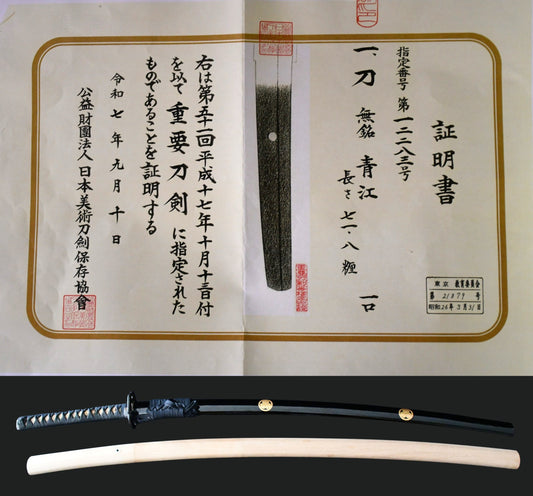 証明書
指定番号 第一一二八三号
一、刀 無銘 青江
長さ 七一・八 糎
一口
右は第五十一回平成十七年十月十三日付
を以て 重要刀剣 に指定された
ものであることを証明する
令和七年 九月 十日
公益財團法人 日本美術刀劍保存協會
東京 教育委員会
第 21879 号
昭和26年3月31日